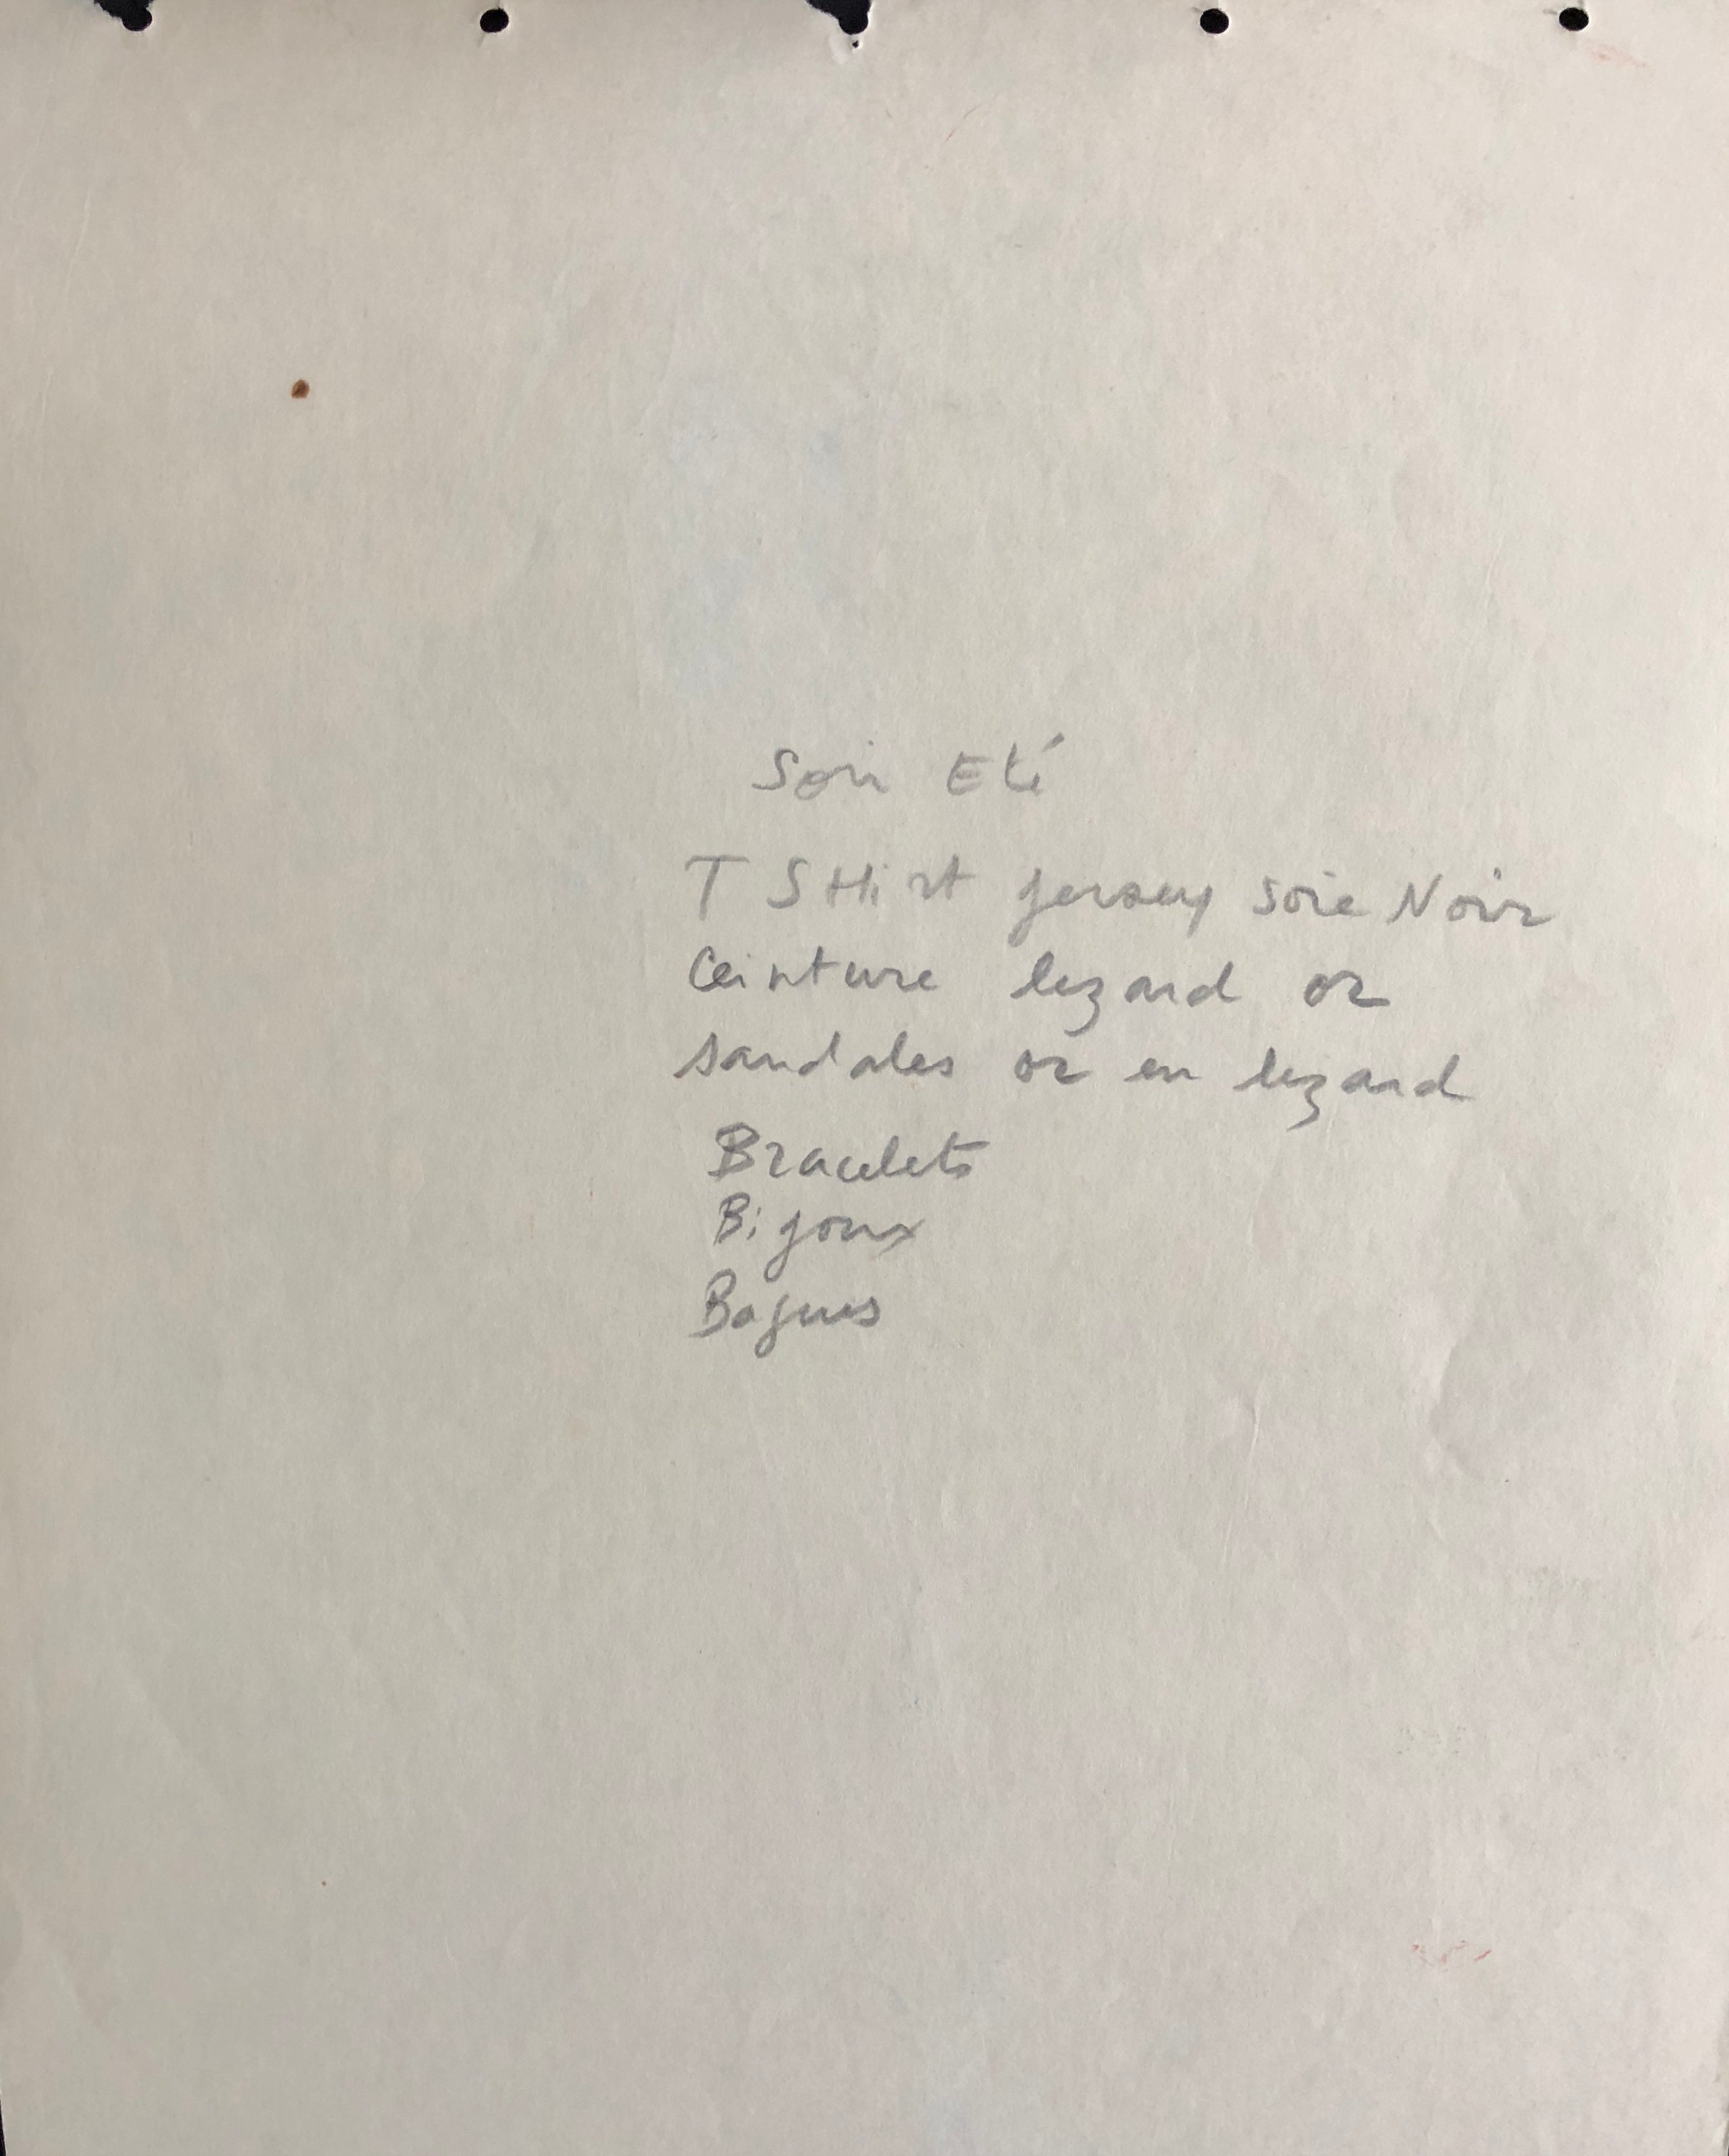 Soir Eté
T SHirt jersey soie Noir
Ceinture lezard or
sandales or en lezard
Bracelets
Bijoux
Bagues